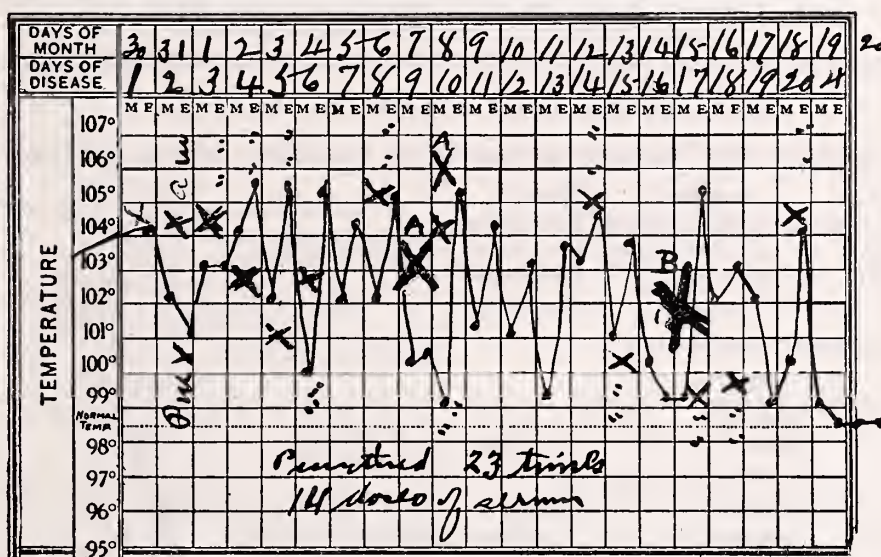 DAYS OF MONTH 30 31 1 2 3 4 5 6 7 8 9 10 11 12 13 14 15 16 17 18 19 20
DAYS OF DISEASE 1 2 3 4 5 6 7 8 9 10 11 12 13 14 15 16 17 18 19 20 21
M E M E M E M E M E M E M E M E M E M E M E M E M E M E M E M E M E M E M E M E M E
TEMPERATURE
107°
106°
105°
104°
103°
102°
101°
100°
99°
NORMAL TEMP.
98°
97°
96°
95°
a m
P m
A
A
B
Punctured 23 times
14 doses of serum